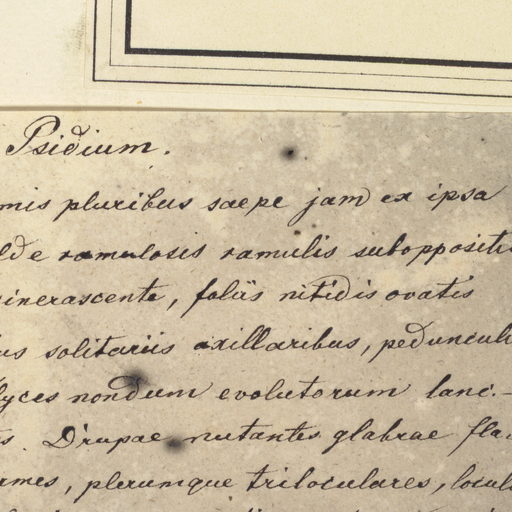 Psidium.
mis pluribus saepe jam ex ipsa
lde ramulosis ramulis suboppositi
inerascente, foliis nitidis ovatis
us solitariis axillaribus, peduncul
lyces nondum evolutorum lanc.-
s. Drupae nutantes glabrae fla
rmes, plerumque triloculares, locul